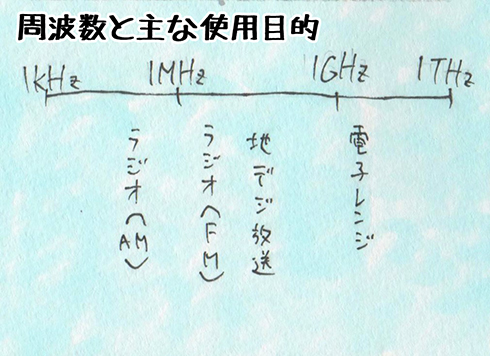 周波数と主な使用目的
1KHz 1MHz 1GHz 1THz
ラジオ(AM)
ラジオ(FM)
地デジ放送
電子レンジ